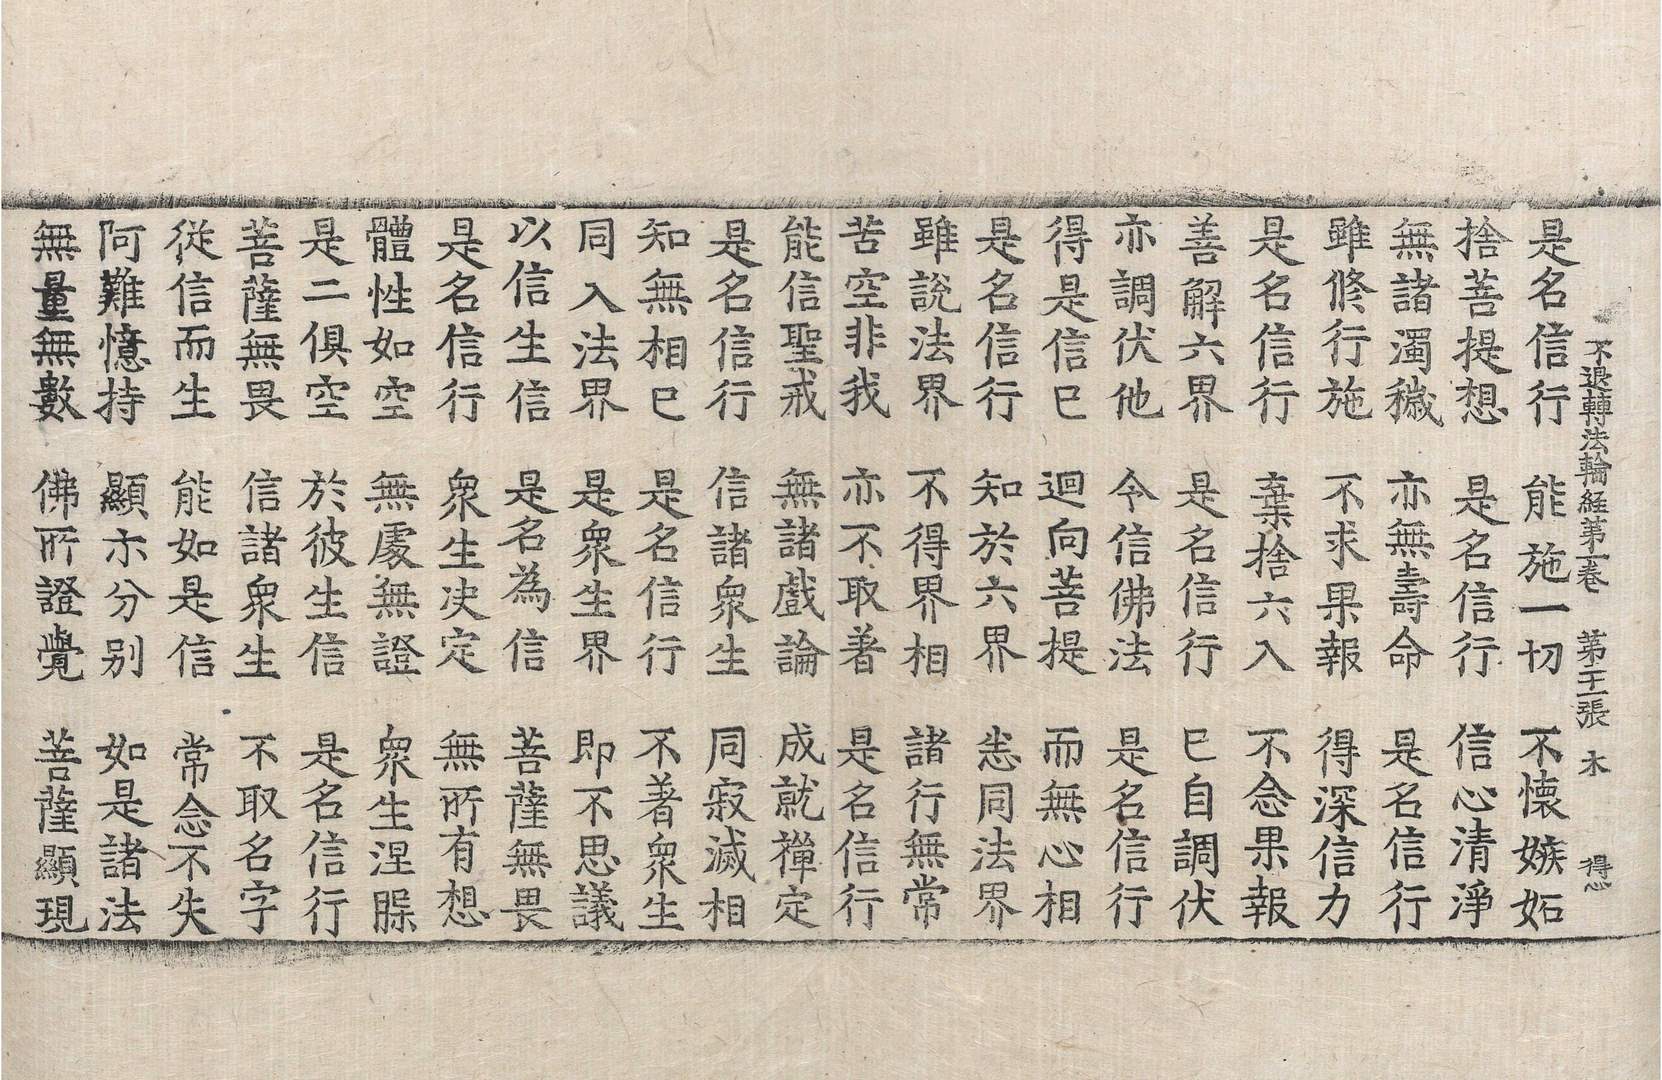 不退轉法輪経第一卷　第二十二張　木　得心
是名信行　能施一切　不懷嫉妬
捨菩提想　是名信行　信心清淨
無諸濁穢　亦無壽命　是名信行
雖修行施　不求果報　得深信力
是名信行　棄捨六入　不念果報
善解六界　是名信行　已自調伏
亦調伏他　令信佛法　是名信行
得是信已　迴向菩提　而無心相
是名信行　知於六界　悉同法界
雖說法界　不得界相　諸行無常
苦空非我　亦不取著　是名信行
能信聖戒　無諸戲論　成就禪定
是名信行　信諸衆生　同寂滅相
知無相已　是名信行　不著衆生
同入法界　是衆生界　即不思議
以信生信　是名為信　菩薩無畏
是名信行　衆生决定　無所有想
體性如空　無處無證　衆生涅槃
是二俱空　於彼生信　是名信行
菩薩無畏　信諸衆生　不取名字
從信而生　能如是信　常念不失
阿難憶持　顯示分別　如是諸法
無量無數　佛所證覺　菩薩顯現